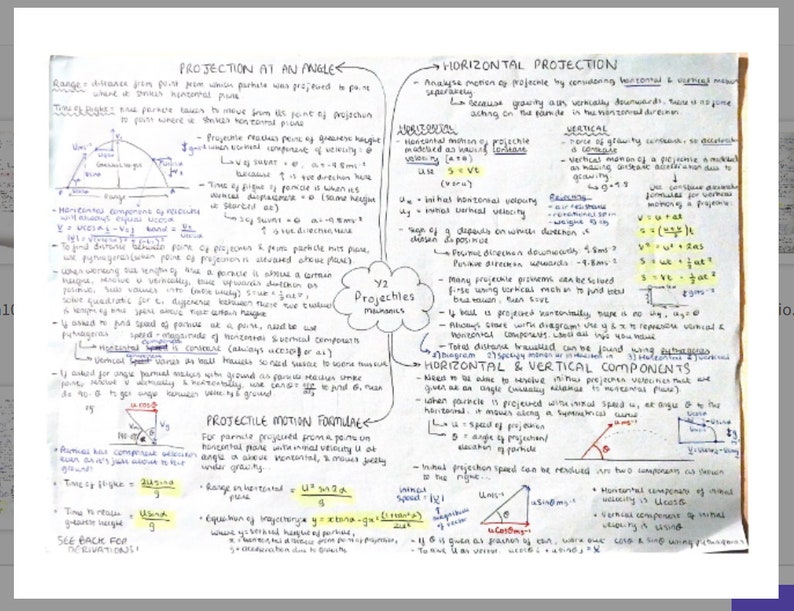 PROJECTION AT AN ANGLE
Range = distance from point from which particle was projected to point
where it strikes horizontal plane
Time of flight = time particle takes to move from its point of projection
to point where it strikes horizontal plane
- Projectile reaches point of greatest height
when vertical component of velocity = 0
↳ V of suvat = 0, a = -9.8ms⁻²
because ↑ is +ve direction here
- Time of flight of particle is when its
vertical displacement = 0 (same height
it started at)
↳ s of suvat = 0 a = -9.8ms⁻²
↑ is +ve direction here
Range
- Horizontal component of velocities
will always equal ucosα
- To find distance between point of projection & point particle hits plane,
use pythagoras (when point of projection is elevated above plane).
- When working out length of time a particle is above a certain
height, resolve u vertically, take upwards direction as
positive, sub values into (most likely) s = ut + ½at²,
solve quadratic for t, difference between these two t values
is length of time spent above that certain height
- If asked to find speed of particle at a point, need to use
pythagoras speed = magnitude of horizontal & vertical components
↳ Horizontal component is constant (always ucosθ or α)
↳ Vertical component varies as ball travels so need suvat to work this out
- If asked for angle particle makes with ground as particle strikes
plane, resolve u vertically & horizontally, use tanθ = opp/adj to find θ, then
do 90 - θ to get angle between velocity & ground.
eg
ucosθ
Vy
90-θ
θ
* Particle has component velocities
even as it's just about to hit
ground!
• Time of flight = 2usinα/g
• Time to reach greatest height = usinα/g
SEE BACK FOR
DERIVATIONS!
PROJECTILE MOTION FORMULAE
For particle projected from a point on
horizontal plane with initial velocity U at
angle α above horizontal, & moves freely
under gravity.
• Range on horizontal plane = u²sin2α/g
• Equation of trajectory: y = xtanα - gx² (1+tan²α)/2u²
where y = vertical height of particle,
x = horizontal distance from point of projection,
g = acceleration due to gravity
Y2
Projectiles
mechanics
HORIZONTAL PROJECTION
- Analyse motion of projectile by considering horizontal & vertical motion
separately.
↳ Because gravity acts vertically downwards, there is no force
acting on the particle in the horizontal direction.
HORIZONTAL
- Horizontal motion of projectile
modelled as having constant
velocity (a = 0)
use s = vt
(v or u)
uₓ = initial horizontal velocity
uᵧ = initial vertical velocity
VERTICAL
- Force of gravity constant, so acceleration
is constant
- Vertical motion of a projectile is modelled
as having constant acceleration due to
gravity
↳ g = 9.8
Use constant acceleration
formulae for vertical
motion of a projectile:
v = u + at
s = (u+v/2)t
v² = u² + 2as
s = ut + ½at²
s = vt - ½at²
- air resistance
- rotational spin
- weight of
- Sign of g depends on which direction is
chosen as positive
↳ Positive direction downwards 9.8ms⁻²
Positive direction upwards -9.8ms⁻²
- Many projectile problems can be solved
first using vertical motion to find total
time taken, then s = vt
- If ball is projected horizontally there is no uᵧ, uᵧ = 0
- Always start with diagram! Use y & x to represent vertical &
horizontal components. Add all info you have
- Total distance travelled can be found using pythagoras
1) Diagram 2) Specify motion as interested in 3) Horizontal & vertical
HORIZONTAL & VERTICAL COMPONENTS
- Need to be able to resolve initial projection velocities that are
given at an angle (usually relative to horizontal plane).
- When particle is projected with initial speed u, at angle θ to the
horizontal, it moves along a symmetrical curve
↳ u = speed of projection
↳ θ = angle of projection/
elevation of particle
u ms⁻¹
θ
- Initial projection speed can be resolved into two components as shown
to the right...
initial
speed = |v|
magnitude
of vector
Ums⁻¹
usinθ ms⁻¹
θ
ucosθ ms⁻¹
• Horizontal component of initial
velocity is Ucosθ
• Vertical component of initial
velocity is usinθ
- If θ is given as fraction of tan, work out cosθ & sinθ using pythagoras
- To have u as vector, ucosθ i + usinθ j = U